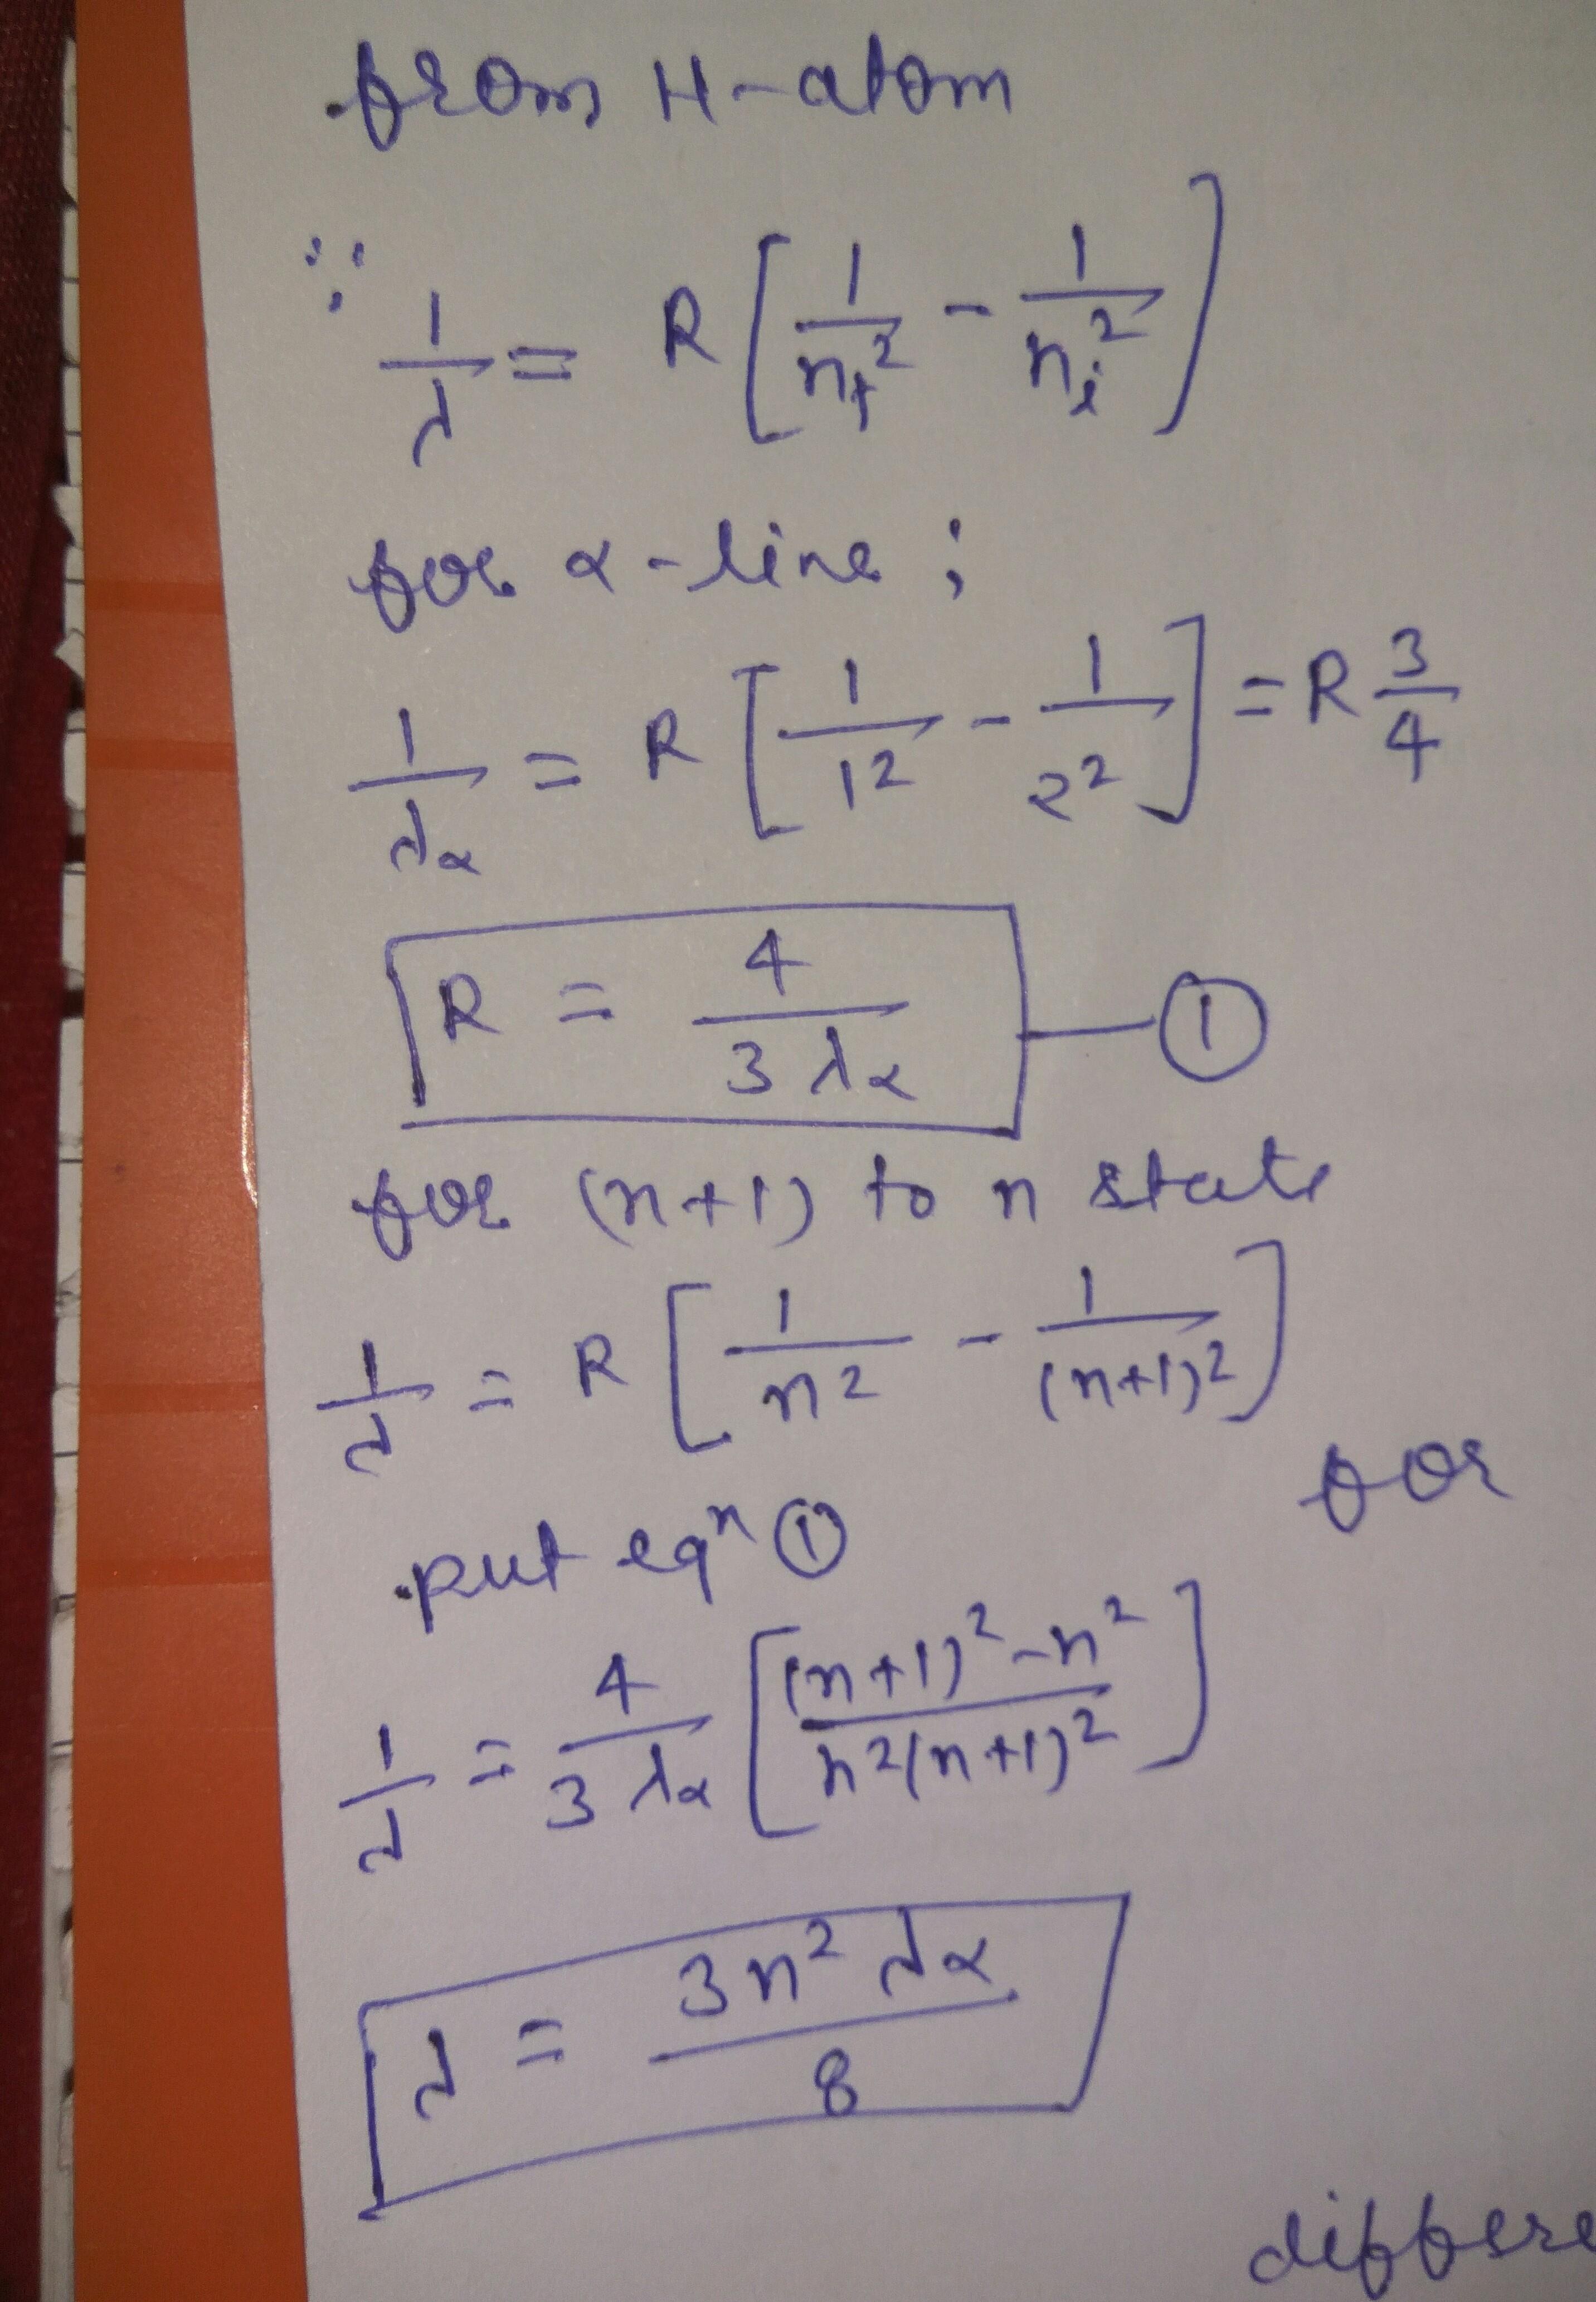 from H-atom
∵ 1/λ = R [1/n_f² - 1/n_i²]
for α-line ;
1/λ_α = R [1/1² - 1/2²] = R 3/4
R = 4/3λ_α — ①
for (n+1) to n state
1/λ = R [1/n² - 1/(n+1)²]
for
put eqⁿ ①
1/λ = 4/3λ_α [(n+1)² - n² / n²(n+1)²]
λ = 3n² λ_α / 8
differe